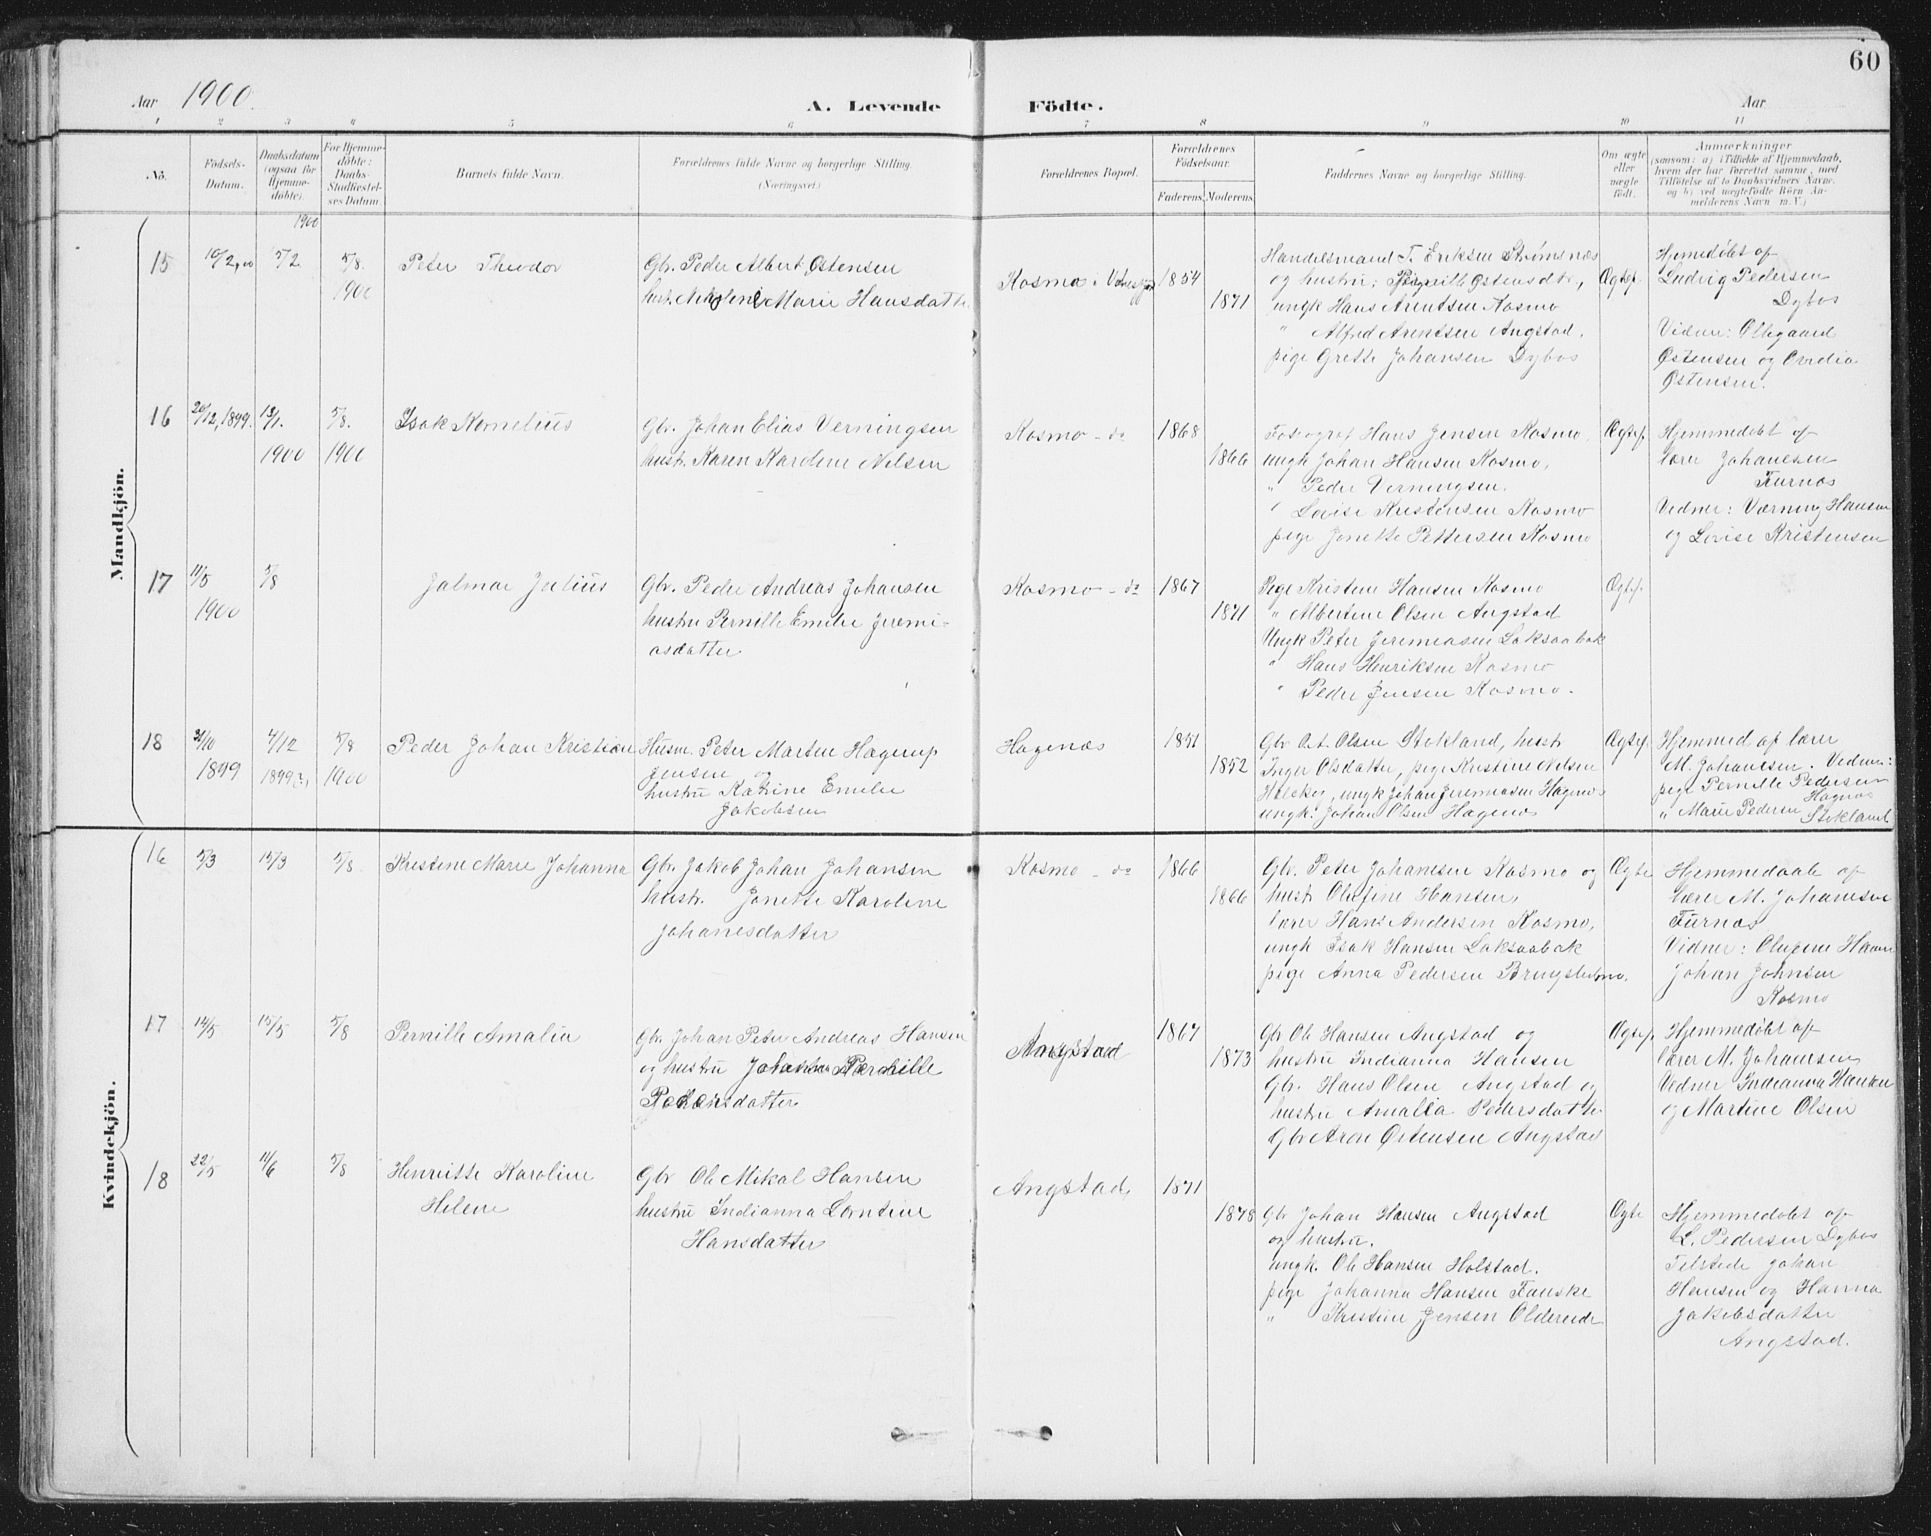 60
Aar 1900.
A. Levende
Födte.
Aar
1 2 3 4 5 6 7 8 9 10 11
No.
Födsels-
Datum.
Daabsdatum
(ogsaa for
Hjemme-
döbte).
For Hjemme-
döbte:
Daabs-
Stadfæstel-
ses Datum.
Barnets fulde Navn.
Forældrenes fulde Navne og borgerlige Stilling.
(Næringsvei.)
Forældrenes Bopæl.
Forældrenes
Födselsaar.
Faderens. Moderens.
Faddernes Navne og borgerlige Stilling.
Om ægte
eller
uægte
födt.
Anmærkninger
(saasom: a) i Tilfælde af Hjemmedaab,
hvem der har forrettet samme, med
Tilföielse af to Daabsvidners Navne,
og b) ved uægtefödte Börn An-
melderens Navn m. V.)
1900
Mandkjön.
15
10/2,00
5/2
5/8.
1900
Peter Theodor
Gbr. Peder Albert Østensen
hustr. Marie Hansdatter
Kosmo i
1854
1871
Handelsmand T. Eriksen Strømsnæs
og hustru; Pernille Østensdtr,
ungk Hans Arentsen Kosmo
" Alfred Arentsen Angstad.
pige Grette Johansen Dybos
Ægtef.
Hjemedøbt af
Ludvig Pedersen
Dybos
Vidner: Ollegaard
Østensen og Ovidia
Østensen.
16
20/12,1899.
13/1.
1900
5/8.
1900
Isak Kornelius
Gbr. Johan Elias Verningsen
hustr. Karen Karoline Nilsen
Kosmo - do
1868
1866
Fotograf Hans Jensen Kosmo,
ungk Johan Hansen Kosmo,
" Peder Verningsen.
" Lovise Kristensen Kosmo
pige Jonette Pettersen Kosmo
Ægtef.
Hjemmedøbt af
lærer Johanesen
Furnæs
Vidner: Værning Hansen
og Lovise Kristensen
17
11/5
1900
5/8
Jalmar Julius
Gbr. Peder Andreas Johansen
hustru Pernille Emilie Jeremi-
asdatter
Kosmo - do
1867
1871
Pige Kristine Hansen Kosmo
" Albertine Olsen Angstad
Ungk Peter Jeremiasen Laksaabak
" Hans Henriksen Kosmo
" Peder Jensen Kosmo.
Ægtef.
18
31/10
1899
4/12
1899
5/8
1900
Peder Johan Kristian
Husm. Peter Marten Hagerup
Jensen og
hustru Katrine Emilie
Jakobsen
Hagenæs
1851
1852
Gbr Ort. Olsen Stokland, hustr
Inger Olsdatter, pige Kristine Nilsen
ungk Johan Jeremiasen Hagenæs
ungk. Johan Olsen Hagenæs
Ægtef.
Hjemmed af lærer
M. Johansen. Vidner:
pige Pernille Pedersen
Hagnæs
" Marie Pedersen Stokland
Kvindekjön.
16
5/3
15/3
5/8
Kristine Marie Johanna
Gbr. Jakob Johan Johansen
hustr. Jonette Karoline
Johanesdatter
Kosmo - do
1866
1866
Gbr. Peter Johansen Kosmo og
hustr Olufine Hansen,
lærer Hans Andersen Kosmo,
ungk Isak Hansen Laksaabak
pige Anna Pedersen
Ægte
Hjemmedaab af
lærer M. Johansen
Furnæs
Vidner: Olufine Hansen
Johan Johnsen
Kosmo
17
14/5
15/5
5/8
Pernille Amalia
Gbr. Johan Peter Andreas Hansen
og hustru Johanna Pernille
Pedersdatter
Angstad
1867
1873
Gbr Ole Hansen Angstad og
hustru Indianna Hansen
Gbr. Hans Olsen Angstad og
hustru Amalia Pedersdatter
Gbr Aron Østensen Angstad
Ægtef.
Hjemmedøbt af
lærer M. Johansen
Vidner Indianna Hansen
og Martine Olsen
18
22/5
11/6
5/8
Henriette Karoline
Helene
Gbr Ole Mikal Hansen
hustru Indianna Lorntine
Hansdatter
Angstad
1871
1878
Gbr Johan Hansen Angstad
og hustru.
ungk. Ole Hansen Holstad.
pige Johanna Hansen Fauske
" Kristine Jensen Oldereide
Ægte
Hjemmedøbt af
L. Pedersen Dybos
Tilstede Johan
Hansen og Hanna
Jakobsdatter
Angstad.